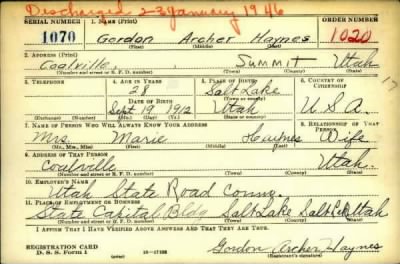 Discharged 23 January 1946
SERIAL NUMBER 1. NAME (Print) ORDER NUMBER
1070 Gordon Archer Haynes 1020
(First) (Middle) (Last)
2. ADDRESS (Print)
Coalville, Summit Utah
(Number and street or R. F. D. number) (Town) (County) (State)
3. TELEPHONE 4. AGE IN YEARS 5. PLACE OF BIRTH 6. COUNTRY OF CITIZENSHIP
28 Salt Lake
DATE OF BIRTH (Town or county)
Sept 19 1912 Utah U.S.A.
(Exchange) (Number) (Mo.) (Day) (Yr.) (State or country)
7. NAME OF PERSON WHO WILL ALWAYS KNOW YOUR ADDRESS 8. RELATIONSHIP OF THAT PERSON
Mrs. Marie Haynes Wife
(Mr., Mrs., Miss) (First) (Middle) (Last)
9. ADDRESS OF THAT PERSON
Coalville Utah.
(Number and street or R. F. D. number) (Town) (County) (State)
10. EMPLOYER'S NAME
Utah State Road Comm
11. PLACE OF EMPLOYMENT OR BUSINESS
State Capital Bldg Salt Lake Salt Lake Utah
(Number and street or R. F. D. number) (Town) (County) (State)
I AFFIRM THAT I HAVE VERIFIED ABOVE ANSWERS AND THAT THEY ARE TRUE.
REGISTRATION CARD
D. S. S. Form 1 16-17105 Gordon Archer Haynes
(Registrant's signature)